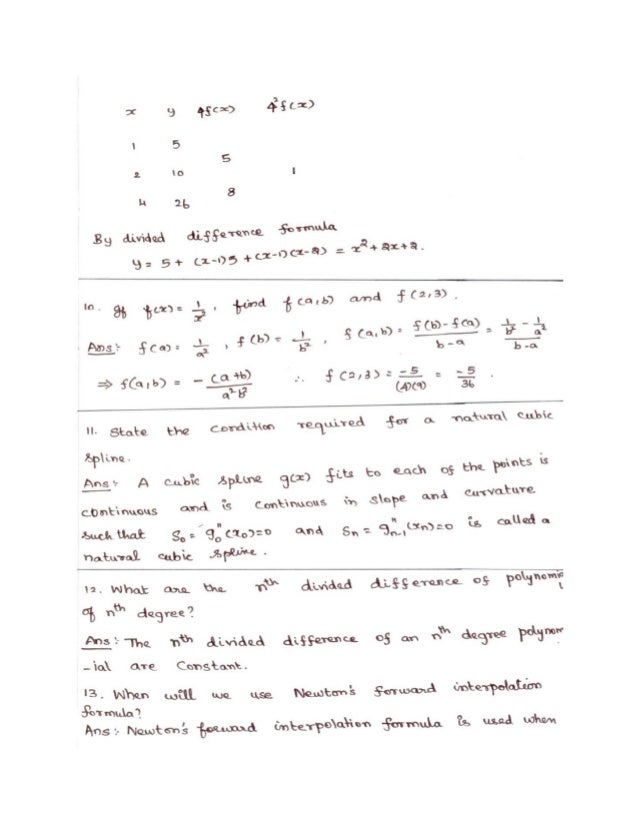 x y 4f(x) 4²f(x)
1 5
5
2 10 1
8
4 26
By divided difference formula
y = 5 + (x-1)5 + (x-1)(x-2) = x² + 2x + 2.
10. If f(x) = 1/x², find f(a,b) and f(2,3).
Ans:- f(a) = 1/a², f(b) = 1/b², f(a,b) = f(b)-f(a)/b-a = 1/b² - 1/a²/b-a
⇒ f(a,b) = -(a+b)/a²b² ∴ f(2,3) = -5/(4)(9) = -5/36.
11. State the condition required for a natural cubic
spline.
Ans:- A cubic spline g(x) fits to each of the points is
continuous and is continuous in slope and curvature
such that S₀ = g₀"(x₀)=0 and Sn = g"n-1(xn)=0 is called a
natural cubic spline.
12. What are the nth divided difference of polynomi
of nth degree?
Ans:- The nth divided difference of an nth degree polynom
-ial are Constant.
13. When will we use Newton's forward interpolation
formula?
Ans:- Newton's forward interpolation formula is used when